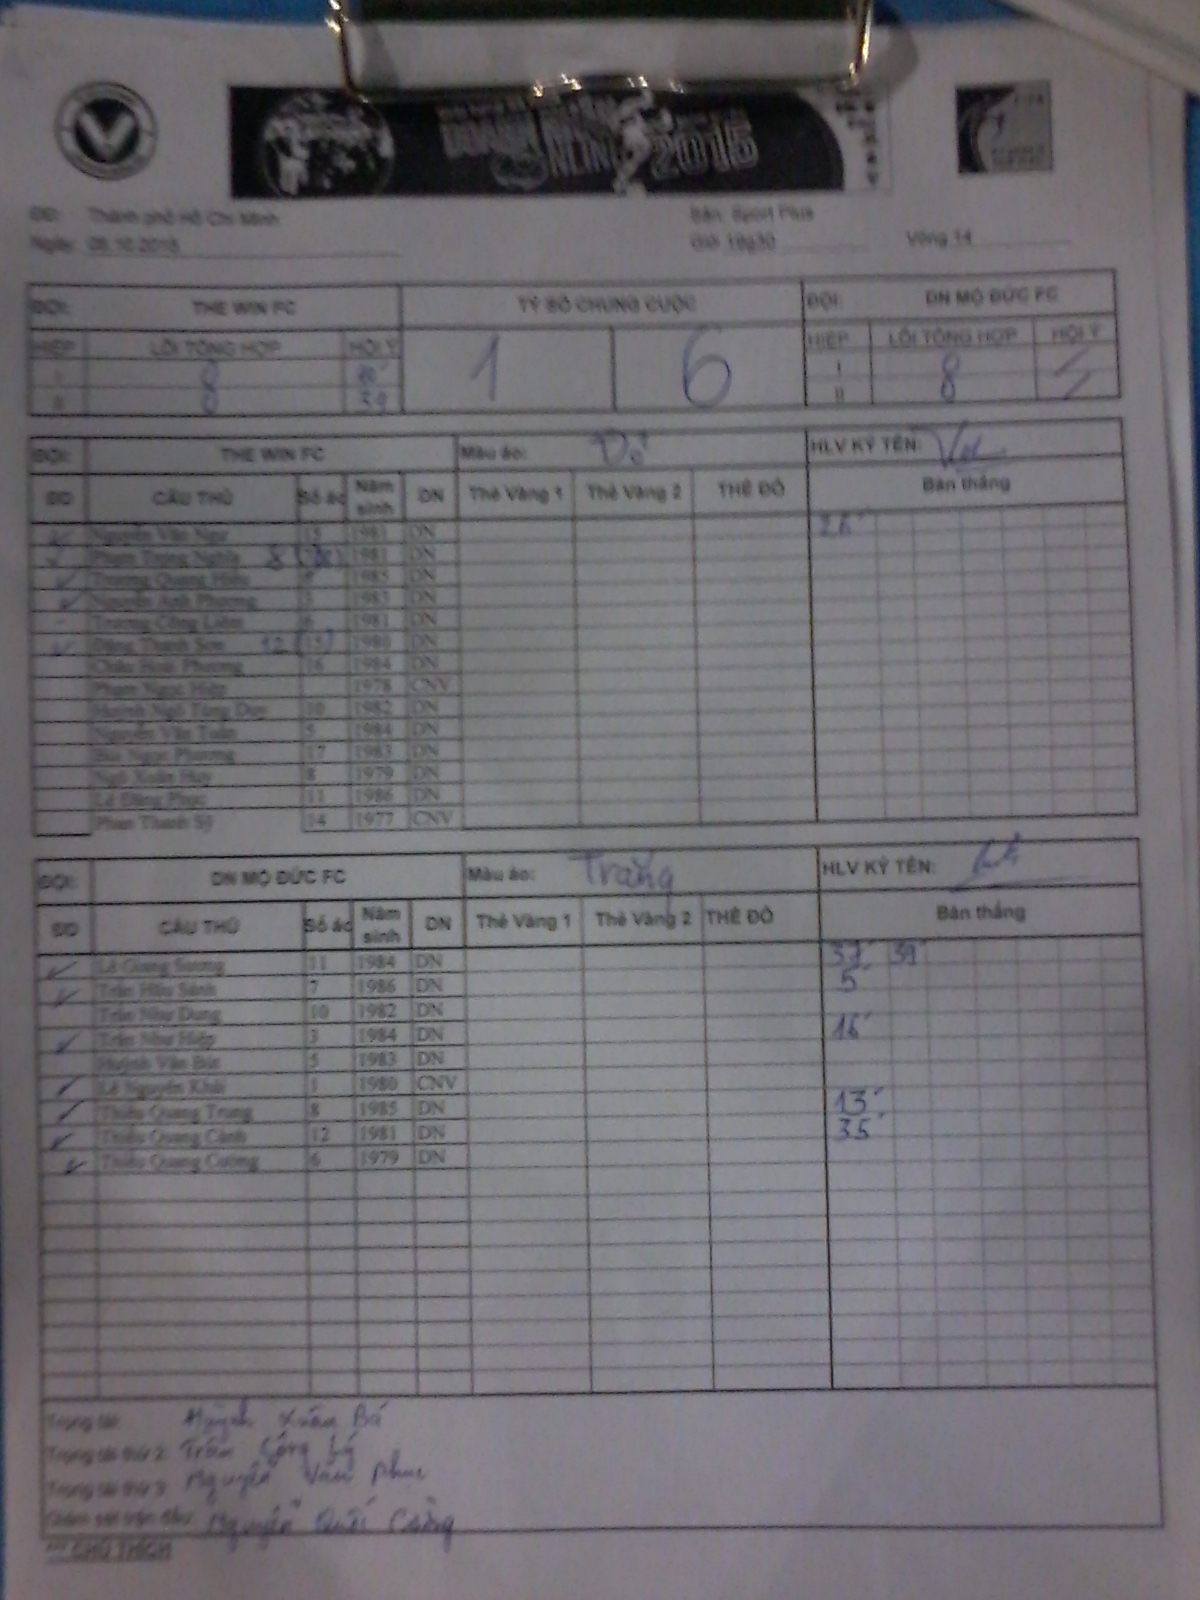 2015
Thành phố Hồ Chí Minh
Sân: Sport Plus
Ngày: 2015
Giờ: 19g30
Vòng 14
ĐỘI: THE WIN FC
TỶ SỐ CHUNG CUỘC
ĐỘI: DN MỘ ĐỨC FC
HIỆP LỖI TỔNG HỢP HỘI Ý
1 6
HIỆP LỖI TỔNG HỢP HỘI Ý
I 8
I 8
II 8 39
II
ĐỘI: THE WIN FC Màu áo: Đỏ HLV KÝ TÊN:
CẦU THỦ Số áo Năm sinh DN Thẻ Vàng 1 Thẻ Vàng 2 THẺ ĐỎ Bàn thắng
Nguyễn Văn 15 1981 DN 26'
Phạm Trọng Nghĩa 8 1981 DN
Trương Quang 1985 DN
Nguyễn Anh Phương 3 1983 DN
Trương Công 6 1981 DN
Đặng Thanh Sơn 12 (15) 1980 DN
Châu Hoài Phương 16 1984 DN
Phạm Ngọc Hiệp 1978 CNV
Huỳnh Ngô Tùng Duy 10 1982 DN
Nguyễn Văn Tuấn 5 1984 DN
Bùi Ngọc Phương 17 1983 DN
Ngô Xuân Huy 8 1979 DN
Lê Đăng Phục 11 1986 DN
Phan Thanh Sỹ 14 1977 CNV
ĐỘI: DN MỘ ĐỨC FC Màu áo: Trắng HLV KÝ TÊN:
CẦU THỦ Số áo Năm sinh DN Thẻ Vàng 1 Thẻ Vàng 2 THẺ ĐỎ Bàn thắng
Lê Giang Sương 11 1984 DN 37' 39'
Trần Hữu Sánh 7 1986 DN 5'
Trần Như Dung 10 1982 DN
Trần Như Hiệp 3 1984 DN 16'
Huỳnh Văn Bút 5 1983 DN
Lê Nguyên Khải 1 1980 CNV
Thiều Quang Trung 8 1985 DN 13'
Thiều Quang Cảnh 12 1981 DN 35'
Thiều Quang Cường 6 1979 DN
Trọng tài: Huỳnh Xuân Bá
Trọng tài thứ 2: Trần Công Lý
Trọng tài thứ 3: Nguyễn Văn Phục
Giám sát trận đấu: Nguyễn Quốc
*** CHÚ THÍCH